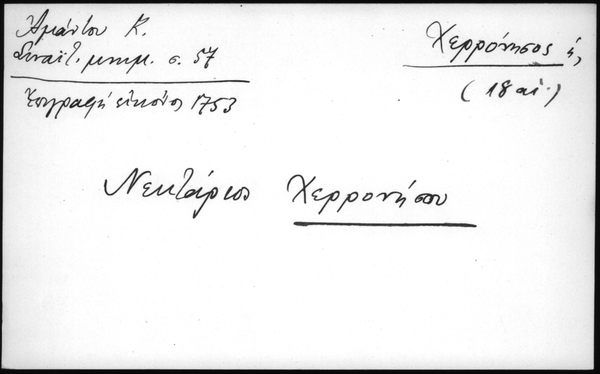 Ἀμάντου Κ.
Σιναϊτ. μνημ. σ. 57
Χερρόνησος ἡ,
(18 αἰ.)
Ἐπιγραφή εἰκόνος 1753
Νεκτάριος Χερρονήσου